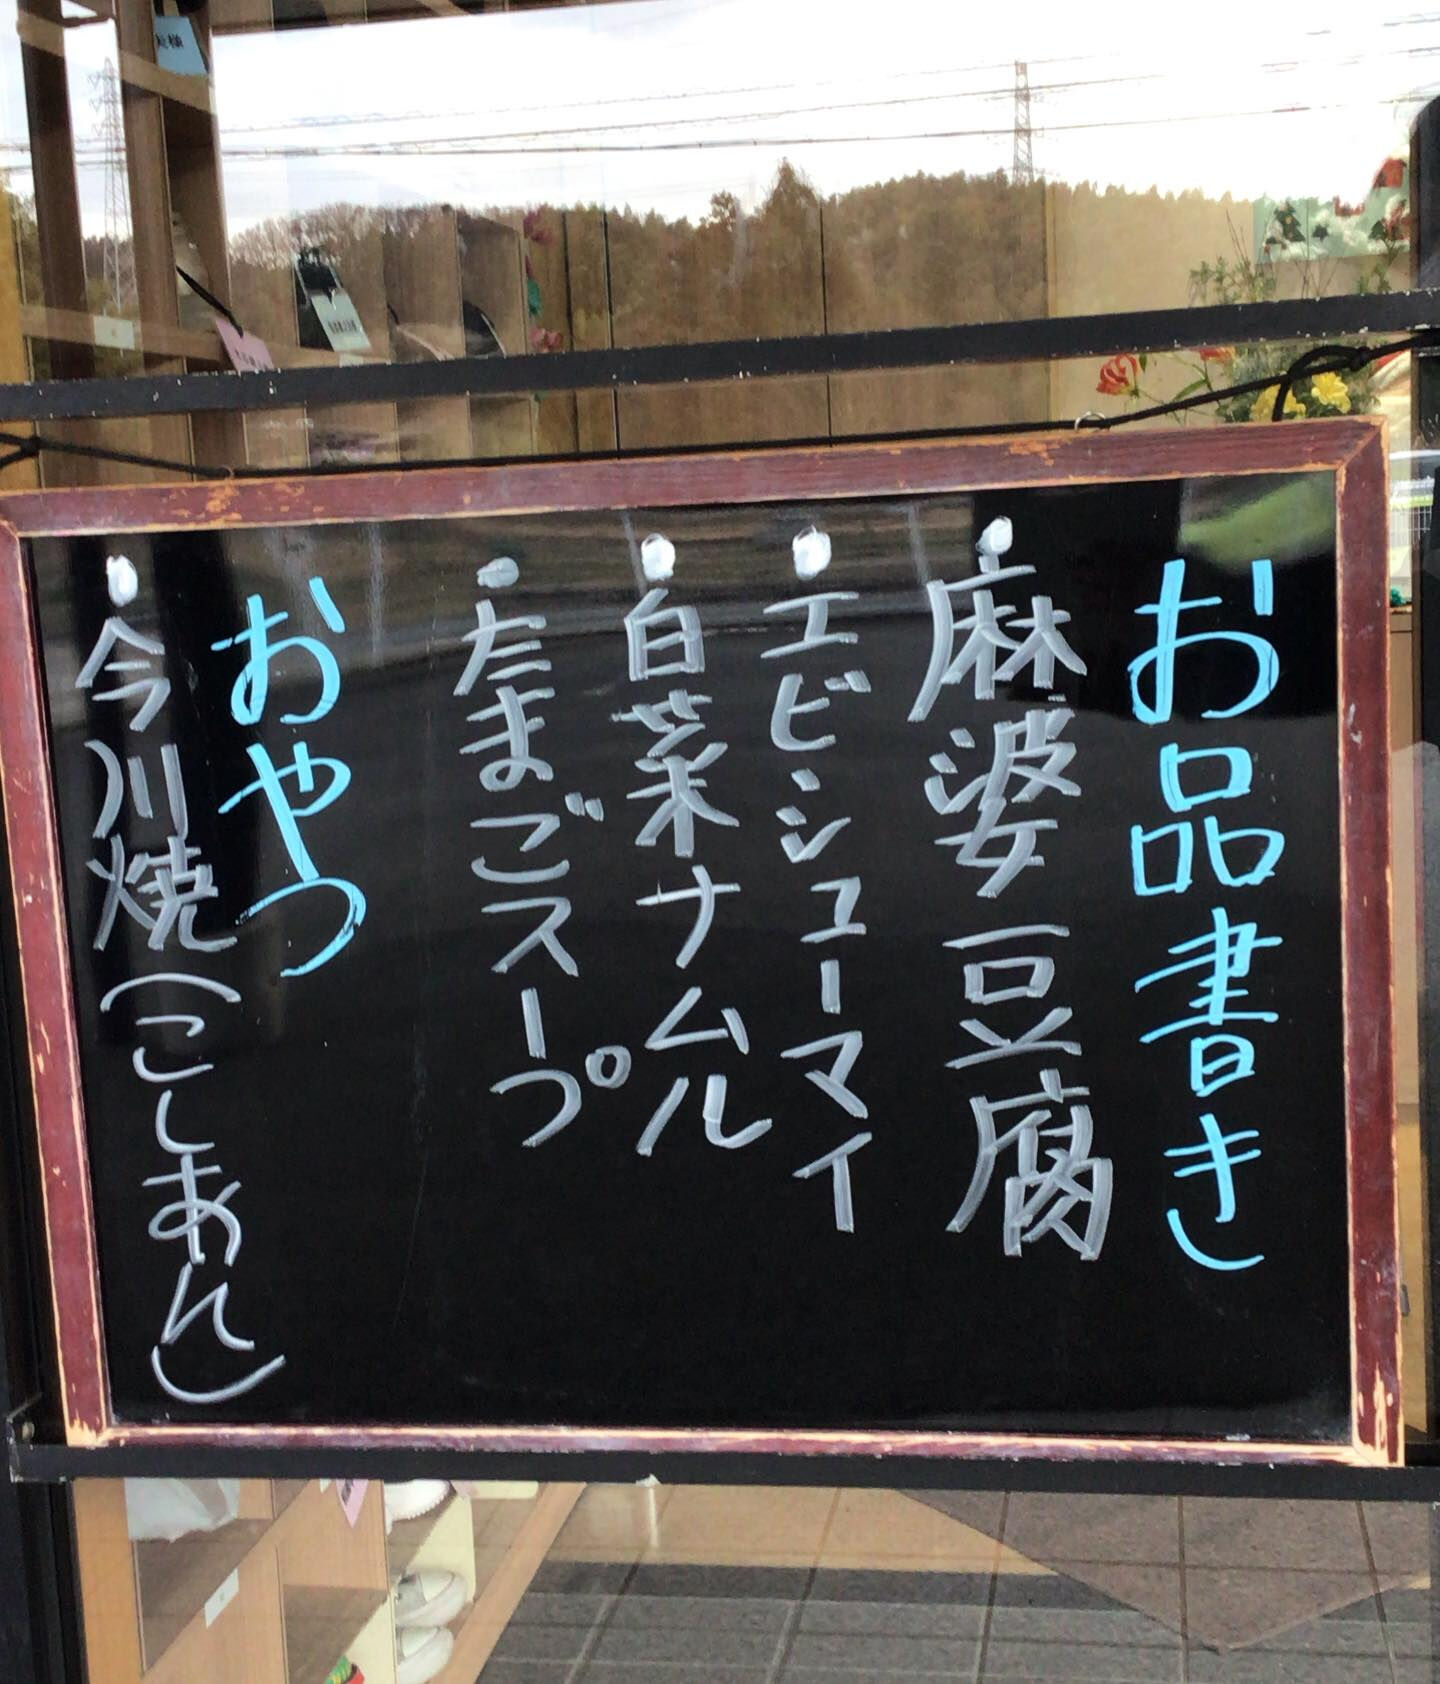 お品書き
麻婆豆腐
エビシューマイ
白菜ナムル
たまごスープ
おやつ
今川焼(こしあん)